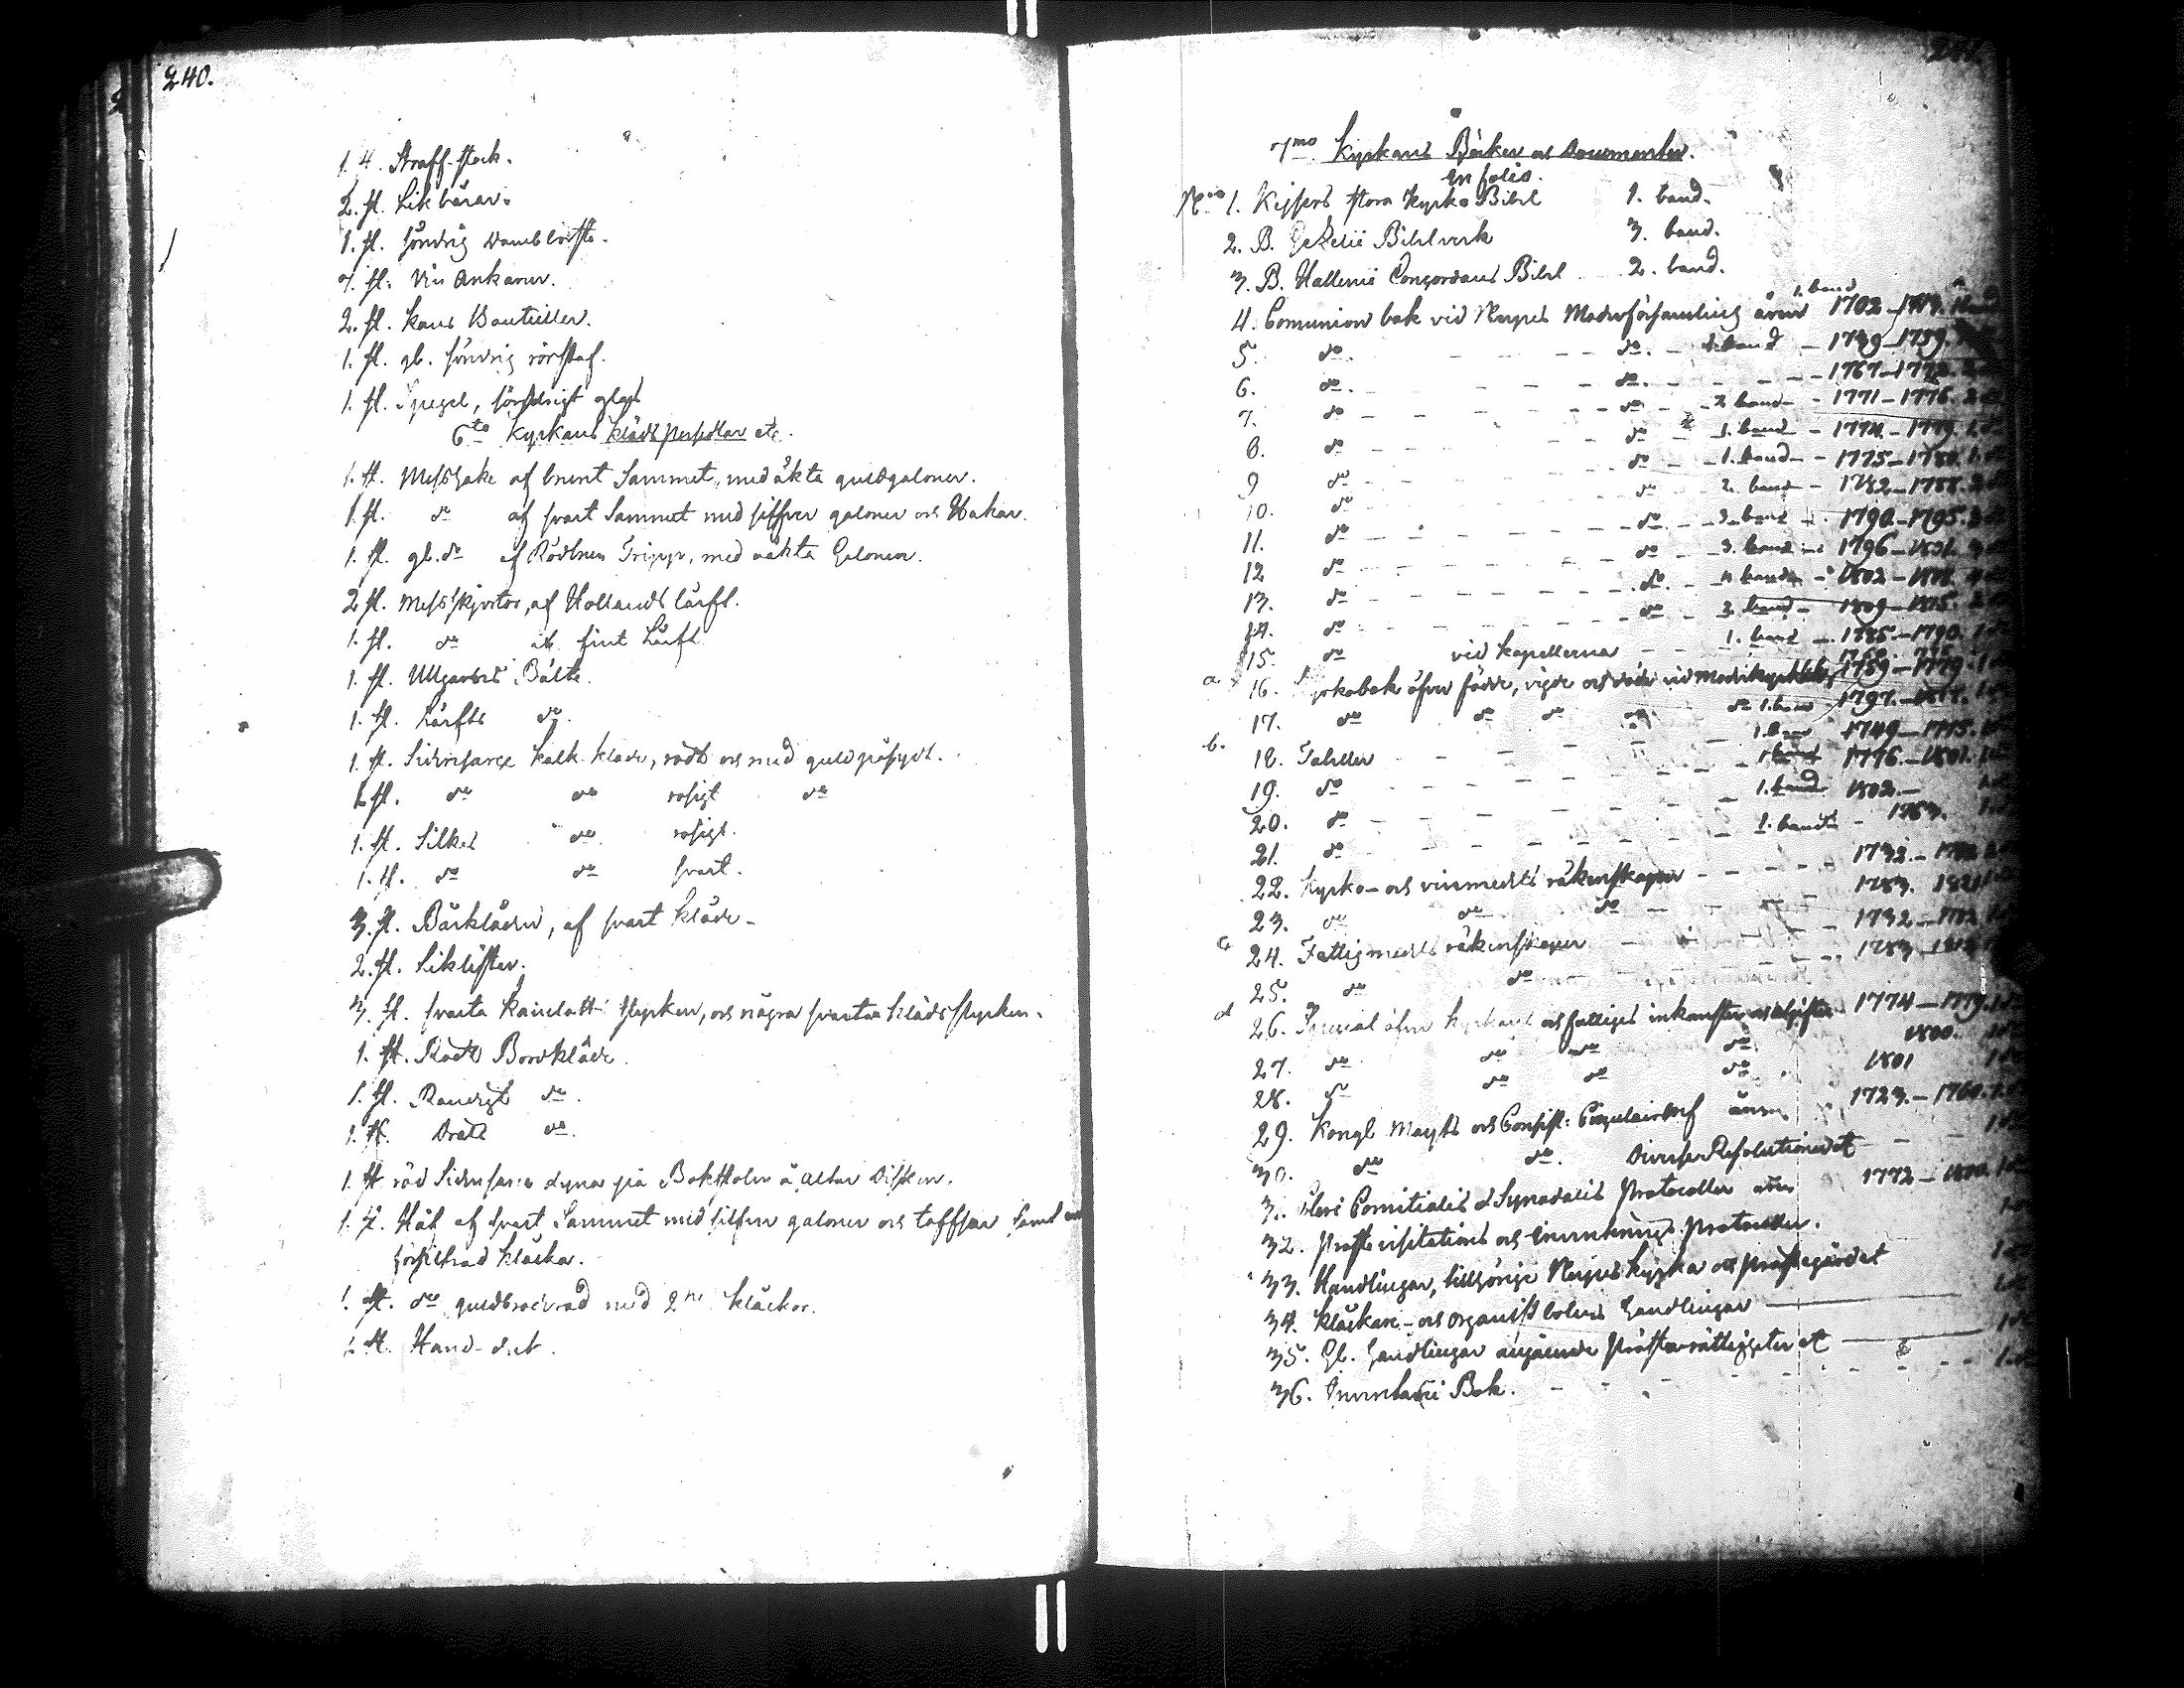 240.
1. st. Straff-stock.
2. st. Likbårar.
1. st. söndrig Damborste.
7. st. Vin Ankaren.
2. st. Kans Boutiller.
1. st. gl. söndrig rörstaf.
1. st. Spegel, söndrigt glas
6to Kyrkans klädspersedlar etc.
1. st. Messhake af brunt Sammet, med äkta guldgaloner.
1. st. do af svart Sammet med silfver galoner och Hakar.
1. st. gl. do af Rödbrun Tripp, med oäkta Galoner.
2 st. Messskjortor, af Hollands lärft.
1. st. do af fint Lärft
1. st. Ullgarns Bälte.
1. st. Lärfts do.
1. st. Sidensarge Kalk kläde, rödt och med guld påsydt.
1. st. do do rosigt do
1. st. Silkes do rosigt.
1. st. do do svart.
3. st. Bårkläden, af svart kläde.
2. st. Liklister.
3. st. svarta Kamlott stycken, och några svarta klädsstycken.
1. st. Rödt Bordkläde.
1. st. Randigt do.
1. st. Dräll do.
1. st. röd Sidensarge dyna på Bokstolen å altar Disken.
1. st. Håf af svart Sammet med silfver galoner och toffsar samt en
försilfrad kläcka.
1. st. do guldbroderad med 2ne kläckor.
1. st. Hand-
241.
7mo Kyrkans Böcker och Documenter.
in folio.
No 1. Keysers stora Kyrko Bibel 1. band.
2. B. Gezelii Bibelverk 3. band.
3. B. Hallenii Concordans Bibel 2. band.
4. Comunion bok vid Nerpes Moderförsamling åren 1. band 1702-
5. do. - - - do. - 1. band - 1739-1759.
6. do. - - - do. - - 1767-
7. do - - - do - 2 band - 1771-1776.
8. do - - - do - 1. band - 1774-1779.
9 do - - - do - 1. band - 1775-1780.
10. do - - - do 2. band - 1782-1788.
11. do - - - do. - 3. band - 1790-1795.
12 do - - - do - 3. band - 1796-1801.
13. do - - - do. - 4 band - 1802-1808.
14. do - - - do - 2. band - 1809-1815.
15. do vid kapellerna - - 1. band - 1785-1790.
a 16. Kyrkobok öfver födde, vigde och döde vid Moderkyrkan 1759-1779.
17. do do do do do 1. band 1797-
b. 18. Tabeller - - - 1. band 1749-1775.
19. do - - - 1. band 1776-1801.
20. do - - - 1. band 1802.-
21. do - - - 1. band - 1763.
22. Kyrko- och vinmedels räkenskaper - - - 1732.-
23. do do do - - 1783. 1821
c 24. Fattigmedels räkenskaper - - - 1732-
25. do do - - - 1783-
d 26. Special öfver kyrkans och fattiges inkomster och utgifter 1774-1779.
27. do do do do 1800.
28. do do do do. 1801
29. Kongl. Mayts och Consist: Circulairbref åren 1723.-1760.
30. do do. Diverse Resolutioner et
31. Cleri Comitialis et Synodalis Protocoller åren 1772-1800.
32. Prosts visitations och Protocoller.
33. Handlingar, tillhörige Nerpes kyrka och prästegårdet
34. Kläckare- och organist bolens handlingar
35. Gl. handlingar angående Prästerrättigheter et
36. Inventarii Bok. - - -